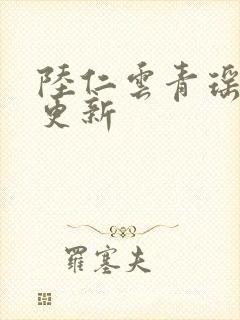 陸仁雲青瑶
更新
羅塞夫